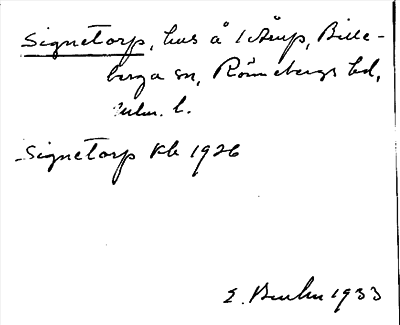 Signetorp, hus å 1 Årup, Bille-
berga sn, Rönnebergs hd,
Malm. l.
Signetorp Kb 1926
E. Bruhn 1933